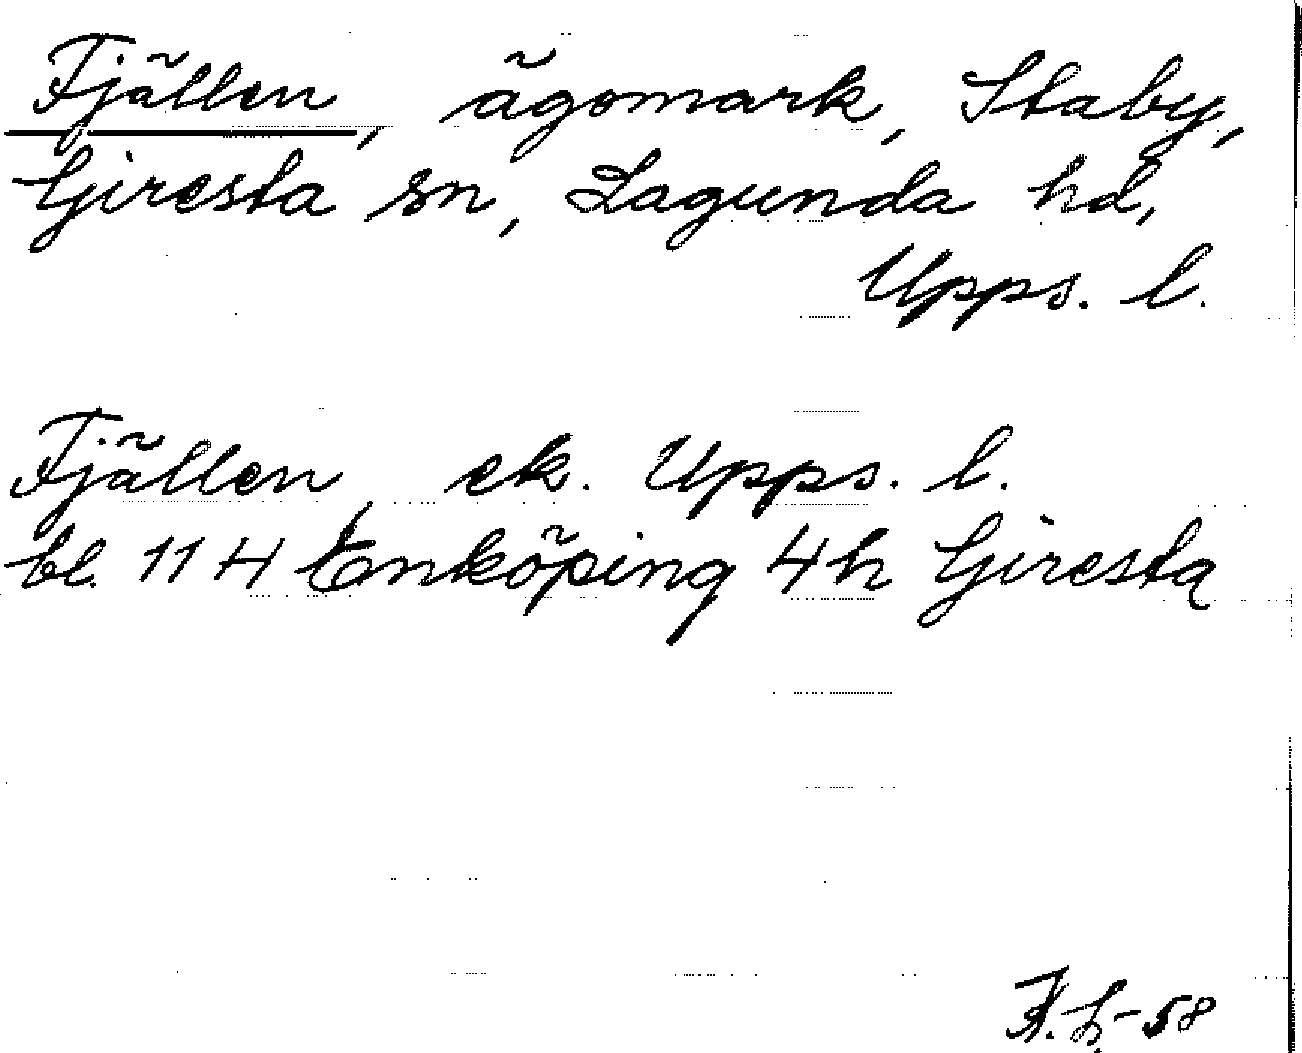 Fjällen, ägomark, Staby,
Giresta sn, Lagunda hd,
Upps. l.
Fjällen ek. Upps. l.
bl. 11 H Enköping 4h Giresta
-58